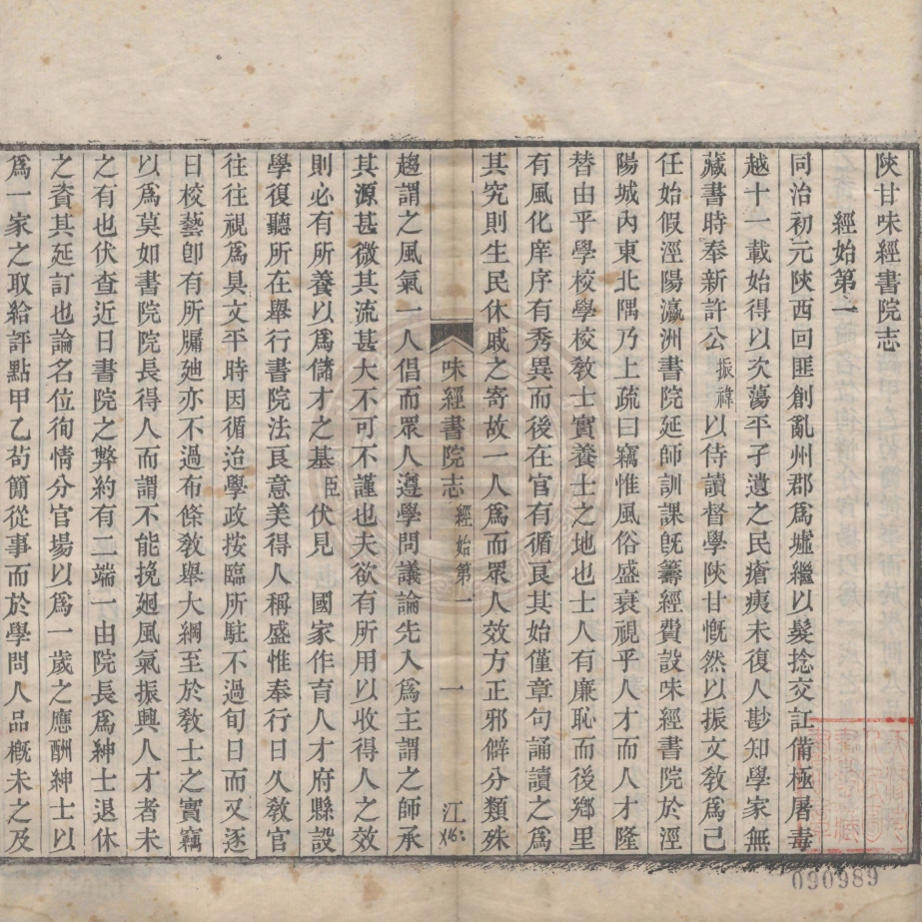 陜甘味經書院志
經始第一
同治初元陜西回匪創亂州郡爲墟繼以髮捻交訌備極屠毒
越十一載始得以次蕩平孑遺之民瘡痍未復人尠知學家無
藏書時奉新許公振禕以侍讀督學陜甘慨然以振文敎爲己
任始假涇陽瀛洲書院延師訓課旣籌經費設味經書院於涇
陽城內東北隅乃上疏曰竊惟風俗盛衰視乎人才而人才隆
替由乎學校學校敎士實養士之地也士人有廉恥而後鄉里
有風化庠序有秀異而後在官有循良其始僅章句誦讀之爲
其究則生民休戚之寄故一人爲而眾人效方正邪僻分類殊
味經書院志 經始第一 一
趨謂之風氣一人倡而眾人遵學問議論先入爲主謂之師承
其源甚微其流甚大不可不謹也夫欲有所用以收得人之效
則必有所養以爲儲才之基臣伏見 國家作育人才府縣設
學復聽所在舉行書院法良意美得人稱盛惟奉行日久敎官
往往視爲具文平時因循迨學政按臨所駐不過旬日而又逐
日校藝卽有所牖廸亦不過布條敎舉大綱至於敎士之實竊
以爲莫如書院院長得人而謂不能挽廻風氣振興人才者未
之有也伏查近日書院之弊約有二端一由院長爲紳士退休
之資其延訂也論名位徇情分官場以爲一歲之應酬紳士以
爲一家之取給評點甲乙苟簡從事而於學問人品槪未之及
090989